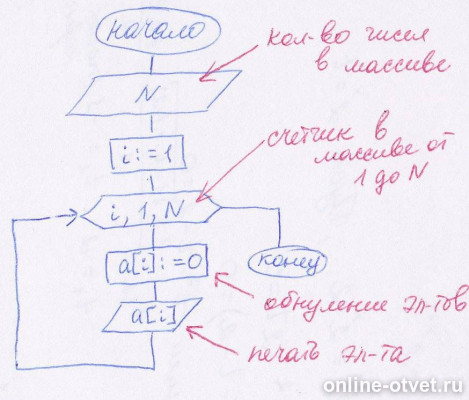 начало
кол-во чисел
в массиве
N
i:=1
счётчик в
массиве от
1 до N
i, 1, N
a[i]:=0
конец
обнуление эл-тов
a[i]
печать эл-та
online-otvet.ru